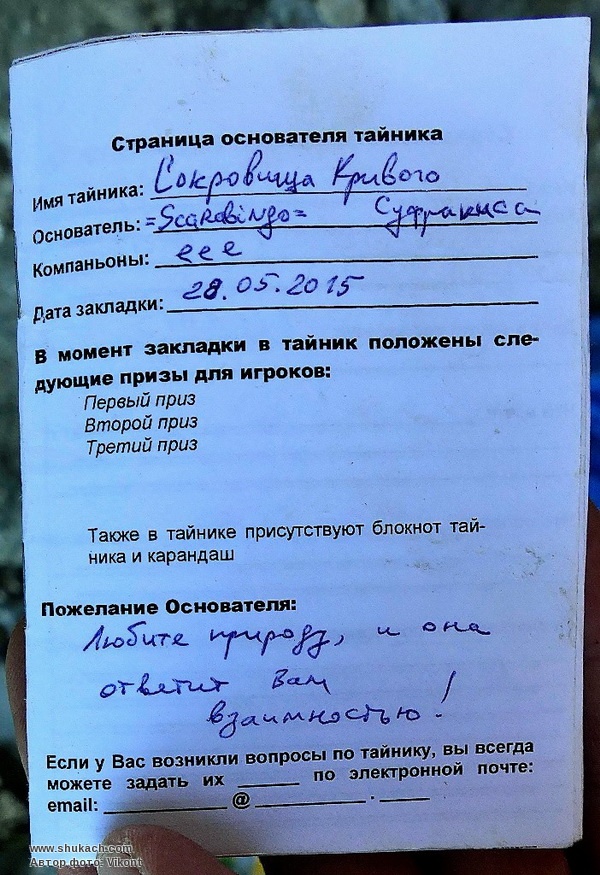 Страница основателя тайника
Имя тайника: Сокровища Кривого
Основатель: =Scarabingo= Суфракиса
Компаньоны: еее
Дата закладки: 28.05.2015
В момент закладки в тайник положены сле-
дующие призы для игроков:
Первый приз
Второй приз
Третий приз
Также в тайнике присутствуют блокнот тай-
ника и карандаш
Пожелание Основателя:
Любите природу, и она
ответит Вам
взаимностью!
Если у Вас возникли вопросы по тайнику, вы всегда
можете задать их ______ по электронной почте:
email: ____________ @ ___________ . _____
www.shukach.com
Автор фото: Vikont